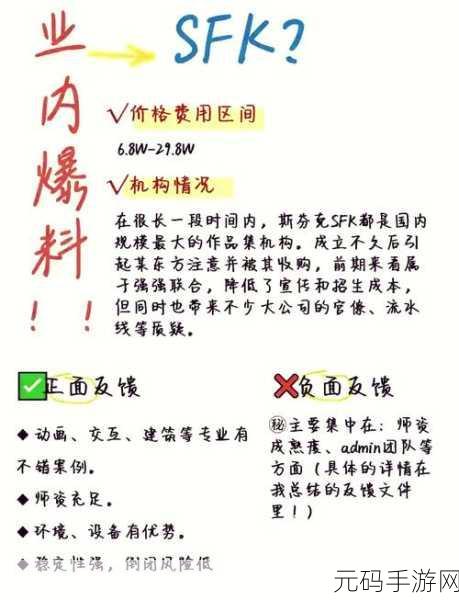 业内爆料！！
SFK?
√价格费用区间
6.8W-29.8W
√机构情况
在很长一段时间内，斯芬克SFK都是国内
规模最大的作品集机构。成立不久后引
起某东方注意并被其收购，前期来看属
于强强联合，降低了宣传和招生成本，
但同时也带来不少大公司的官僚、流水
线等质疑。
正面反馈
◆动画、交互、建筑等专业有
不错案例。
◆师资充足。
◆环境、设备有优势。
◆稳定性强，倒闭风险低
负面反馈
㊙主要集中在：师资
成熟度、admin团队等
方面（具体的详情在
我总结的反馈文件
里！）
元码手游网